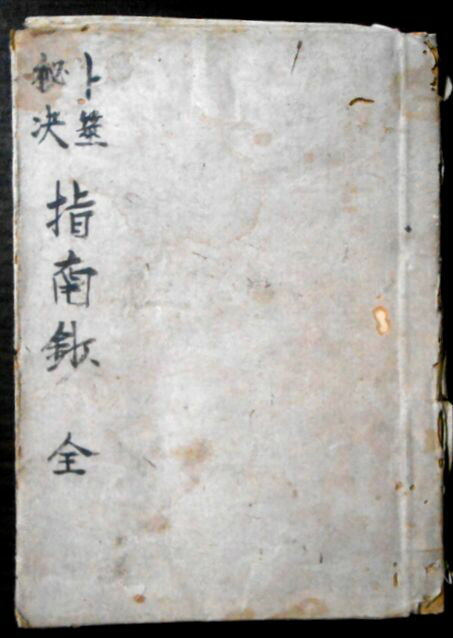 卜筮
秘决
指南鈔 全